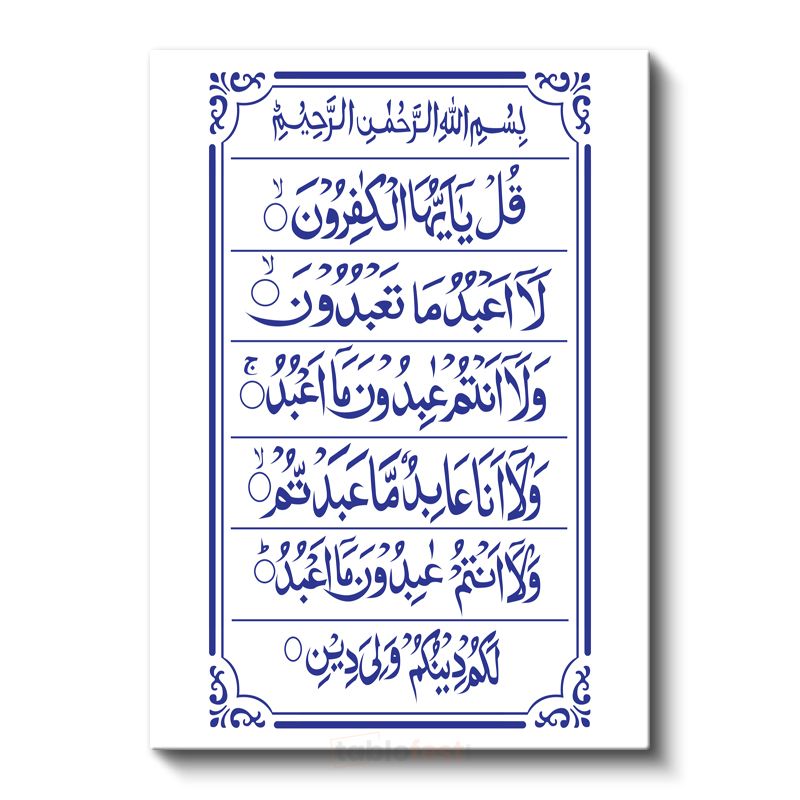 بِسْمِ اللهِ الرَّحْمٰنِ الرَّحِيْمِ
قُلْ يَاۤاَيُّهَا الْكٰفِرُوْنَ ۙ
لَاۤ اَعْبُدُ مَا تَعْبُدُوْنَ ۙ
وَلَاۤ اَنْتُمْ عٰبِدُوْنَ مَاۤ اَعْبُدُ ۚ
وَلَاۤ اَنَا عَابِدٌ مَّا عَبَدْتُّمْ ۙ
وَلَاۤ اَنْتُمْ عٰبِدُوْنَ مَاۤ اَعْبُدُ ؕ
لَكُمْ دِيْنُكُمْ وَلِىَ دِيْنِ
tablofest